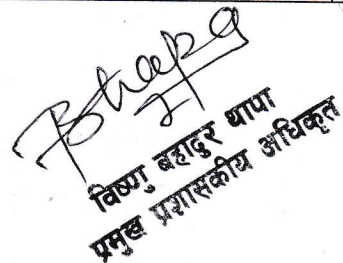 विष्णु बहादुर थापा
प्रमुख प्रशासकीय अधिकृत